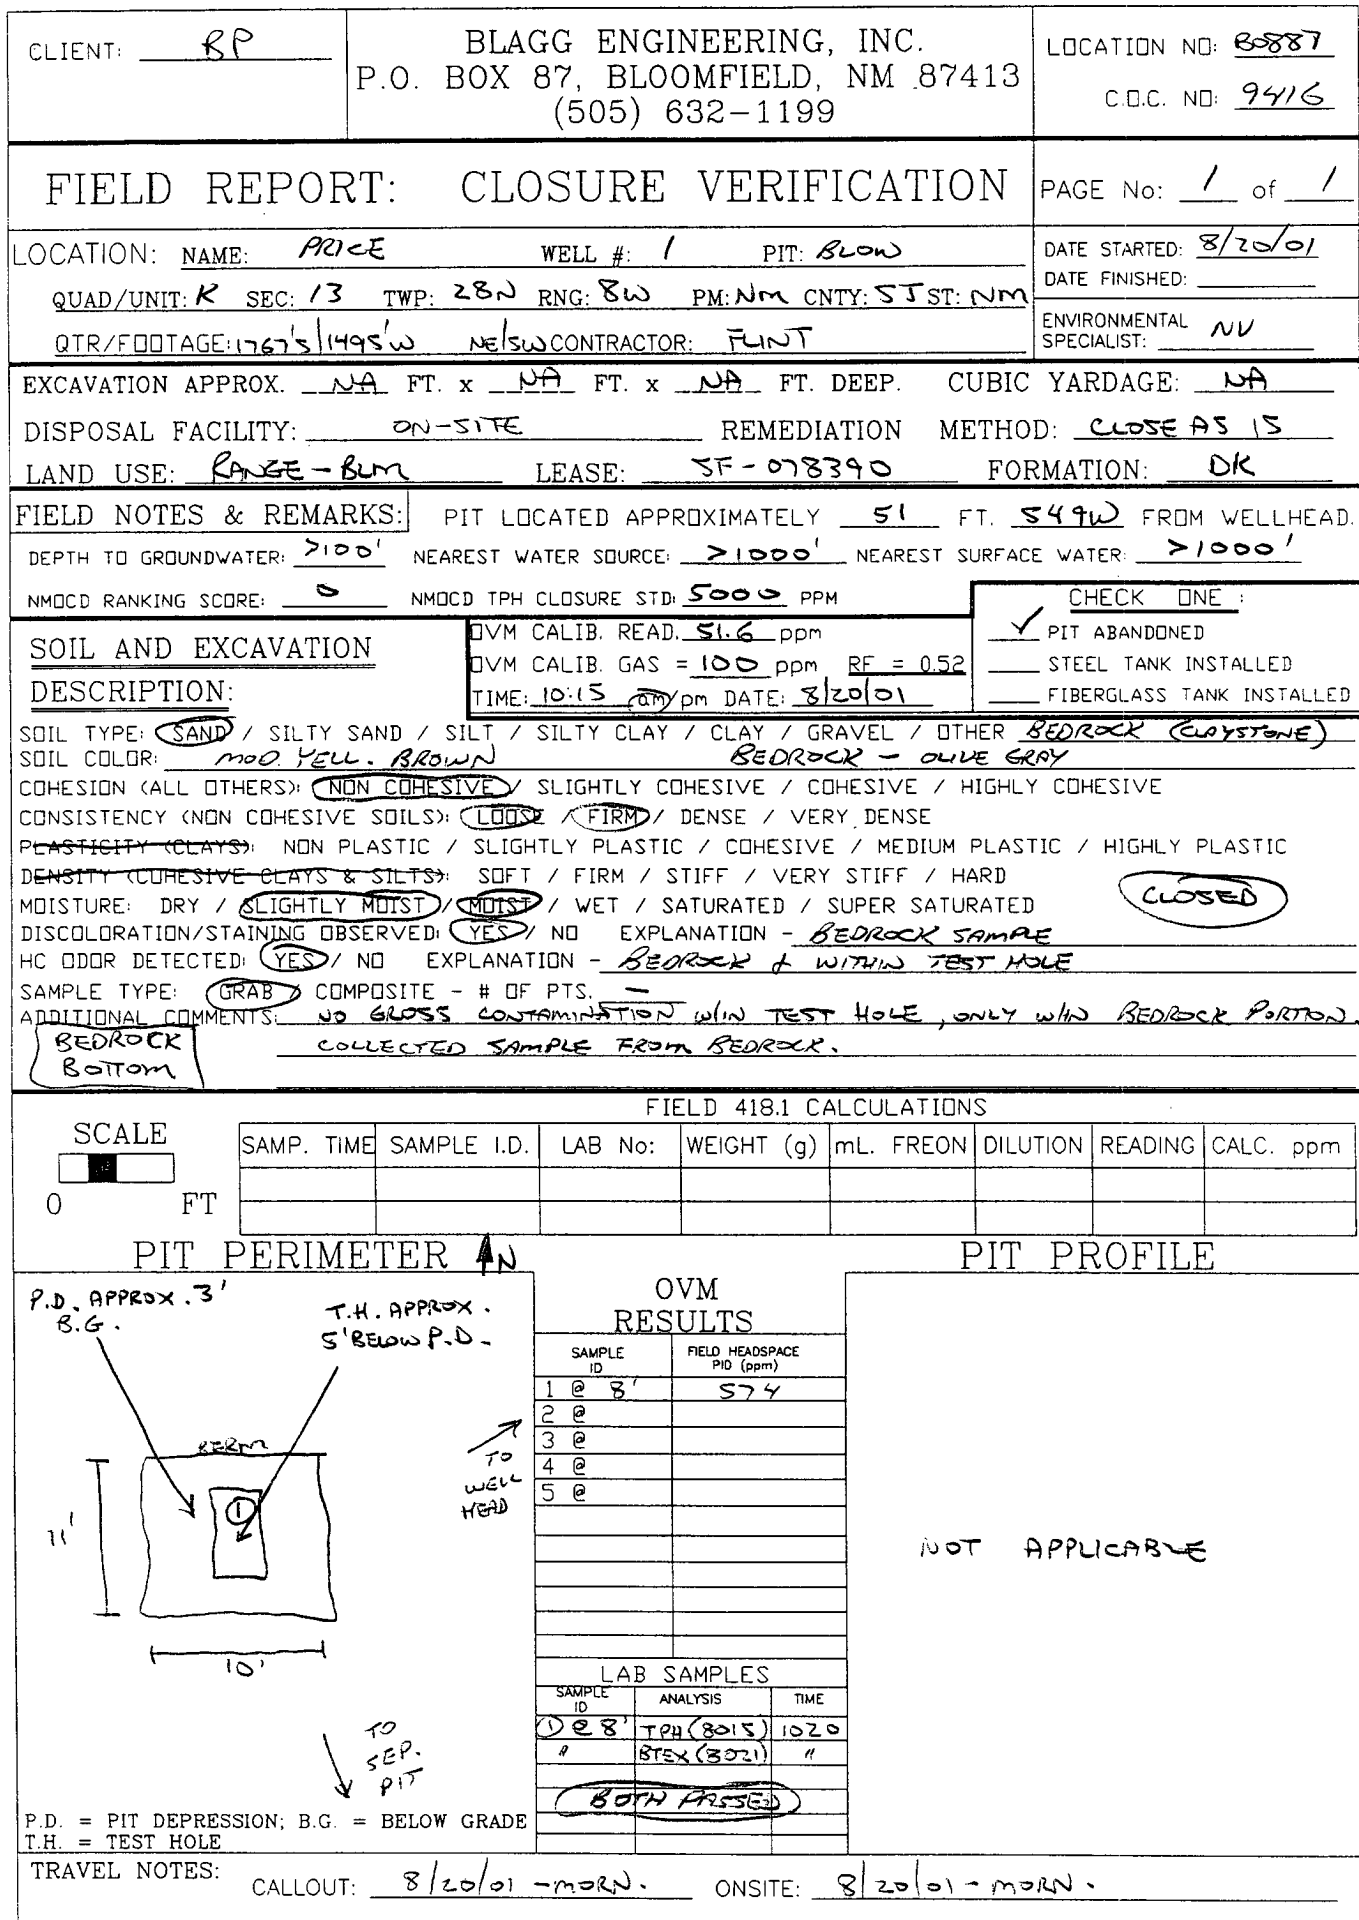 CLIENT: BP
BLAGG ENGINEERING, INC.
P.O. BOX 87, BLOOMFIELD, NM 87413
(505) 632-1199
LOCATION NO: B0887
C.O.C. NO: 9416
FIELD REPORT: CLOSURE VERIFICATION
PAGE No: 1 of 1
LOCATION: NAME: PRICE WELL #: 1 PIT: BLOW
QUAD/UNIT: K SEC: 13 TWP: 28N RNG: 8W PM: NM CNTY: SJ ST: NM
QTR/FOOTAGE: 1767'S/1495'W NE/SW CONTRACTOR: FLINT
DATE STARTED: 8/20/01
DATE FINISHED:
ENVIRONMENTAL
SPECIALIST: NV
EXCAVATION APPROX. NA FT. x NA FT. x NA FT. DEEP. CUBIC YARDAGE: NA
DISPOSAL FACILITY: ON-SITE REMEDIATION METHOD: CLOSE AS IS
LAND USE: RANGE - BLM LEASE: SF-078390 FORMATION: DK
FIELD NOTES & REMARKS: PIT LOCATED APPROXIMATELY 51 FT. S49W FROM WELLHEAD.
DEPTH TO GROUNDWATER: >100' NEAREST WATER SOURCE: >1000' NEAREST SURFACE WATER: >1000'
NMOCD RANKING SCORE: 0 NMOCD TPH CLOSURE STD: 5000 PPM
CHECK ONE :
✓ PIT ABANDONED
STEEL TANK INSTALLED
FIBERGLASS TANK INSTALLED
SOIL AND EXCAVATION
DESCRIPTION:
OVM CALIB. READ. 51.6 ppm
OVM CALIB. GAS = 100 ppm RF = 0.52
TIME: 10:15 am/pm DATE: 8/20/01
SOIL TYPE: SAND / SILTY SAND / SILT / SILTY CLAY / CLAY / GRAVEL / OTHER BEDROCK (CLAYSTONE)
SOIL COLOR: MOD. YELL. BROWN BEDROCK - OLIVE GRAY
COHESION (ALL OTHERS): NON COHESIVE / SLIGHTLY COHESIVE / COHESIVE / HIGHLY COHESIVE
CONSISTENCY (NON COHESIVE SOILS): LOOSE / FIRM / DENSE / VERY DENSE
PLASTICITY (CLAYS): NON PLASTIC / SLIGHTLY PLASTIC / COHESIVE / MEDIUM PLASTIC / HIGHLY PLASTIC
DENSITY (COHESIVE CLAYS & SILTS): SOFT / FIRM / STIFF / VERY STIFF / HARD
MOISTURE: DRY / SLIGHTLY MOIST / MOIST / WET / SATURATED / SUPER SATURATED
CLOSED
DISCOLORATION/STAINING OBSERVED: YES / NO EXPLANATION - BEDROCK SAMPLE
HC ODOR DETECTED: YES / NO EXPLANATION - BEDROCK & WITHIN TEST HOLE
SAMPLE TYPE: GRAB / COMPOSITE - # OF PTS. -
ADDITIONAL COMMENTS: NO GROSS CONTAMINATION W/IN TEST HOLE, ONLY W/IN BEDROCK PORTION.
COLLECTED SAMPLE FROM BEDROCK.
BEDROCK
BOTTOM
FIELD 418.1 CALCULATIONS
SCALE
0 FT
SAMP. TIME SAMPLE I.D. LAB No: WEIGHT (g) mL. FREON DILUTION READING CALC. ppm
PIT PERIMETER N
PIT PROFILE
P.D. APPROX. 3'
B.G.
T.H. APPROX.
5' BELOW P.D.
BERM
1
11'
10'
TO
WELL
HEAD
TO
SEP.
PIT
P.D. = PIT DEPRESSION; B.G. = BELOW GRADE
T.H. = TEST HOLE
OVM
RESULTS
SAMPLE ID FIELD HEADSPACE PID (ppm)
1 @ 8' 574
2 @
3 @
4 @
5 @
LAB SAMPLES
SAMPLE ID ANALYSIS TIME
① @ 8' TPH (8015) 1020
" BTEX (8021) "
BOTH PASSED
NOT APPLICABLE
TRAVEL NOTES: CALLOUT: 8/20/01 - MORN. ONSITE: 8/20/01 - MORN.